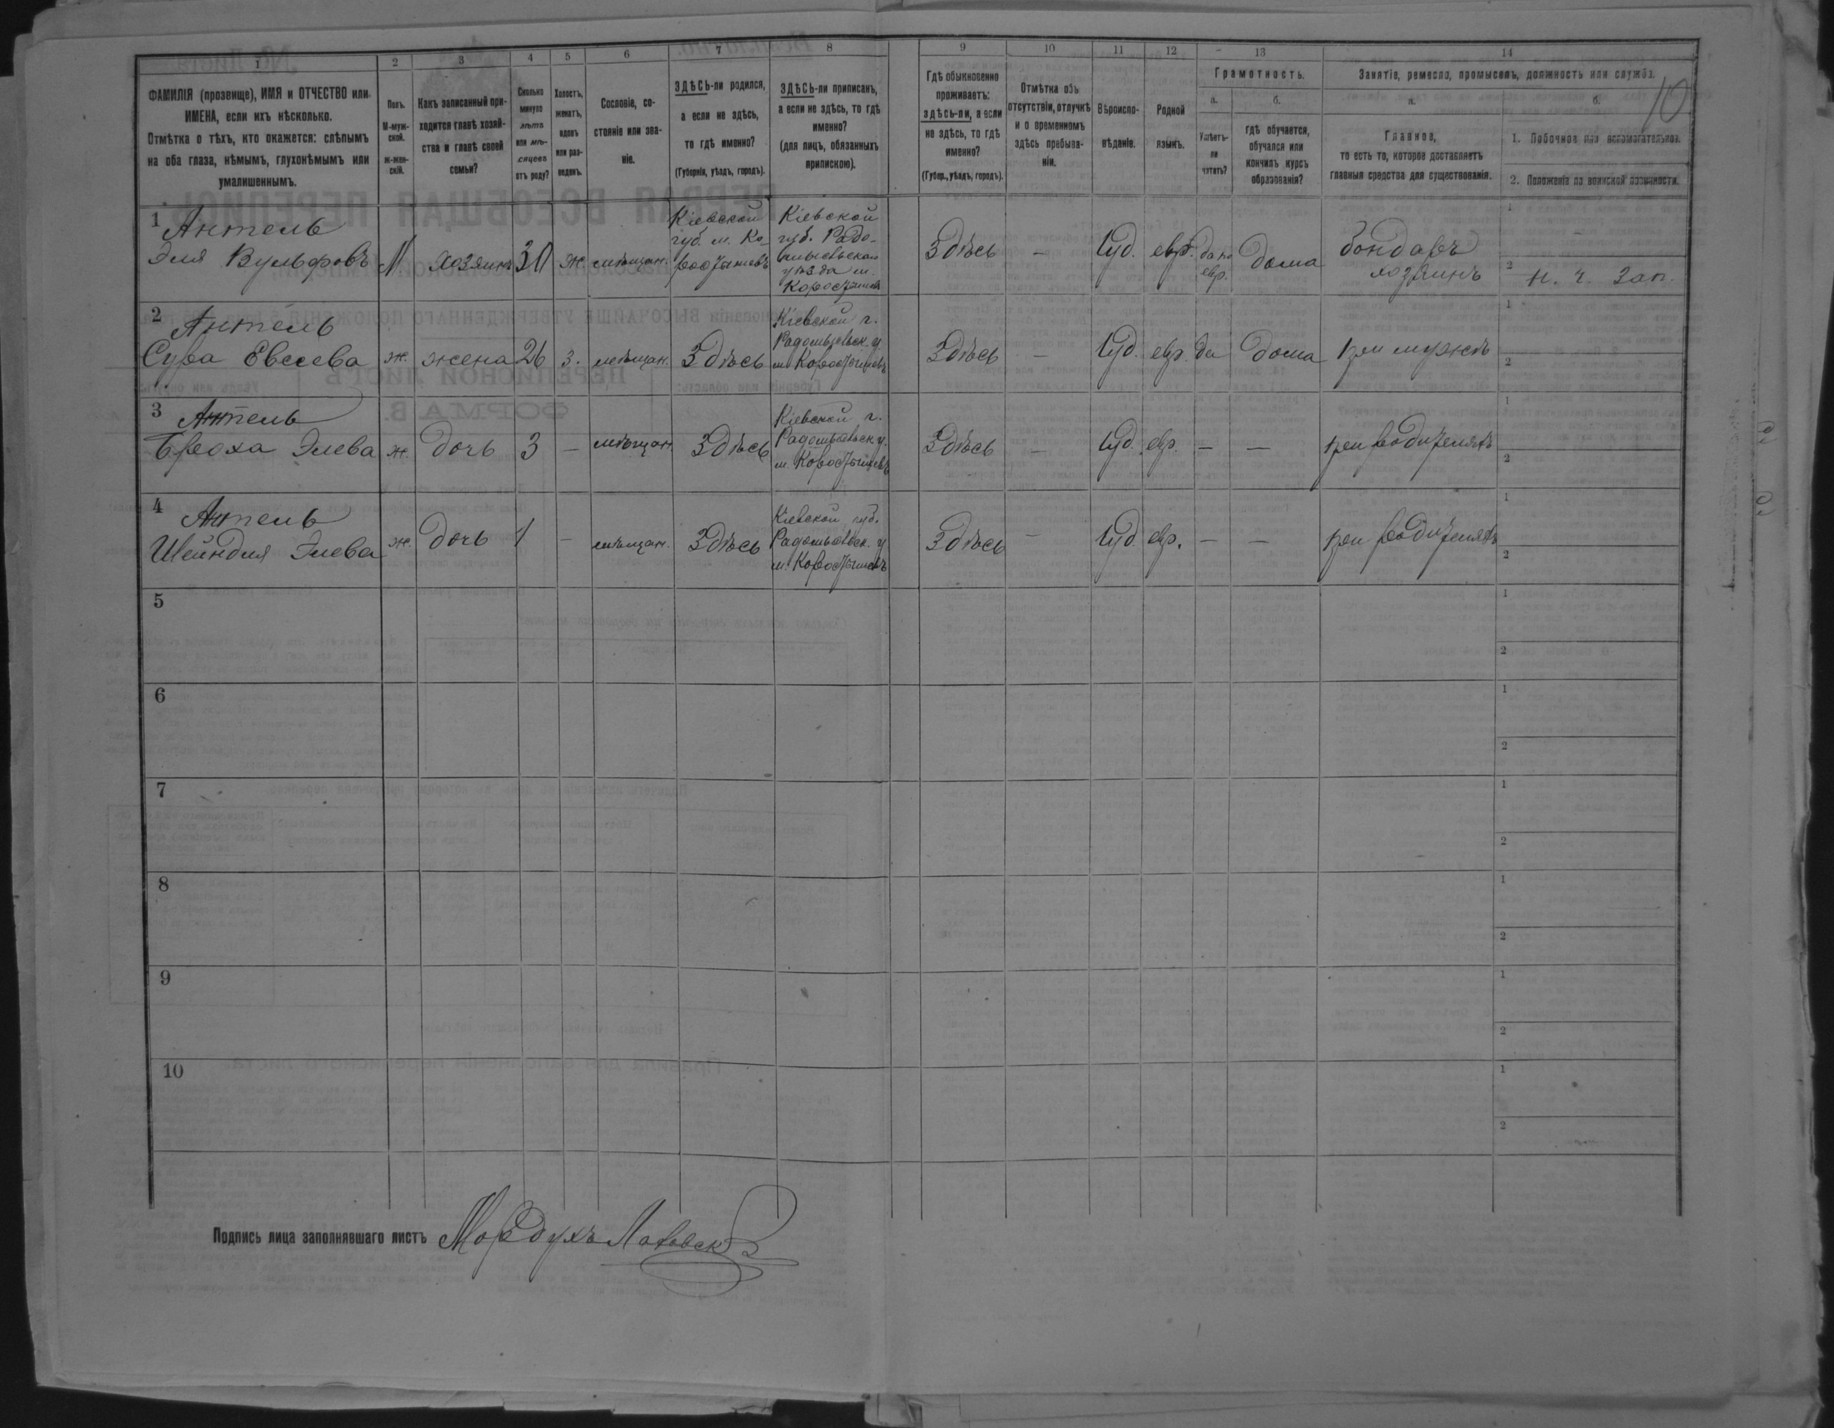 1 2 3 4 5 6 7 8 9 10 11 12 13 14
10
ФАМИЛІЯ (прозвище), ИМЯ и ОТЧЕСТВО или
ИМЕНА, если ихъ нѣсколько.
Отмѣтка о тѣхъ, кто окажется: слѣпымъ
на оба глаза, нѣмымъ, глухонѣмымъ или
умалишеннымъ.
Полъ.
М-муж-
ской.
ж-жен-
скій.
Какъ записанный при-
ходится главѣ хозяй-
ства и главѣ своей
семьи?
Сколько
минуло
лѣтъ
или мѣ-
сяцевъ
отъ роду?
Холостъ,
женатъ,
вдовъ
или раз-
веденъ.
Сословіе, со-
стояніе или зва-
ніе.
ЗДѢСЬ-ли родился,
а если не здѣсь,
то гдѣ именно?
(Губернія, уѣздъ, городъ).
ЗДѢСЬ-ли приписанъ,
а если не здѣсь, то гдѣ
именно?
(для лицъ, обязанныхъ
припискою).
Гдѣ обыкновенно
проживаетъ:
здѣсь-ли, а если
не здѣсь, то гдѣ
именно?
(Губер., уѣздъ, городъ).
Отмѣтка объ
отсутствіи, отлучкѣ
и о временномъ
здѣсь пребыва-
ніи.
Вѣроиспо-
вѣданіе.
Родной
языкъ.
Грамотность.
а.
Умѣетъ-
ли
читать?
б.
гдѣ обучается,
обучался или
кончилъ курсъ
образованія?
Занятіе, ремесло, промыселъ, должность или служба.
а.
Главное,
то есть то, которое доставляетъ
главныя средства для существованія.
б.
1. Побочное или вспомогательное.
2. Положеніе по воинской повинности.
1 Антель
Эля Вульфовъ
М
хозяинъ
30
ж
мѣщан.
Кіевской
губ. м. Ко-
ростышевъ
Кіевской
губ. Радо-
мысльскаго
уѣзда м.
Коростышев
Здѣсь
—
Іуд.
евр.
да по
евр.
дома
бондарь
хозяинъ
1
2 н. ч. зап.
2 Антель
Сура Евсеева
ж.
жена
26
з.
мѣщан.
Здѣсь
Кіевской г.
Радомысльск. у
м. Коростышевъ
Здѣсь
—
Іуд.
евр.
да
дома
при мужѣ
1
2
3 Антель
Брооха Элева
ж.
дочь
3
—
мѣщан.
Здѣсь
Кіевской г.
Радомысльск. у.
м. Коростышевъ
Здѣсь
—
Іуд.
евр.
—
—
при родителяхъ
1
2
4 Антель
Шейндля Элева
ж.
дочь
1
—
мѣщан.
Здѣсь
Кіевской губ.
Радомысльск. у
м. Коростышевъ
Здѣсь
—
Іуд
евр.
—
—
при родителяхъ
1
2
5
1
2
6
1
2
7
1
2
8
1
2
9
1
2
10
1
2
Подпись лица заполнявшаго листъ Мордухъ